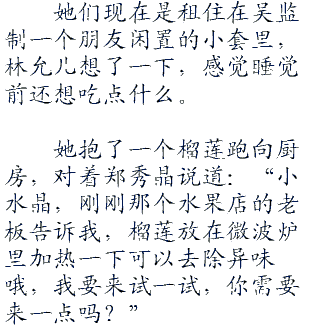 她们现在是租住在吴监
制一个朋友闲置的小套里，
林允儿想了一下，感觉睡觉
前还想吃点什么。
她抱了一个榴莲跑向厨
房，对着郑秀晶说道：“小
水晶，刚刚那个水果店的老
板告诉我，榴莲放在微波炉
里加热一下可以去除异味
哦，我要来试一试，你需要
来一点吗？”